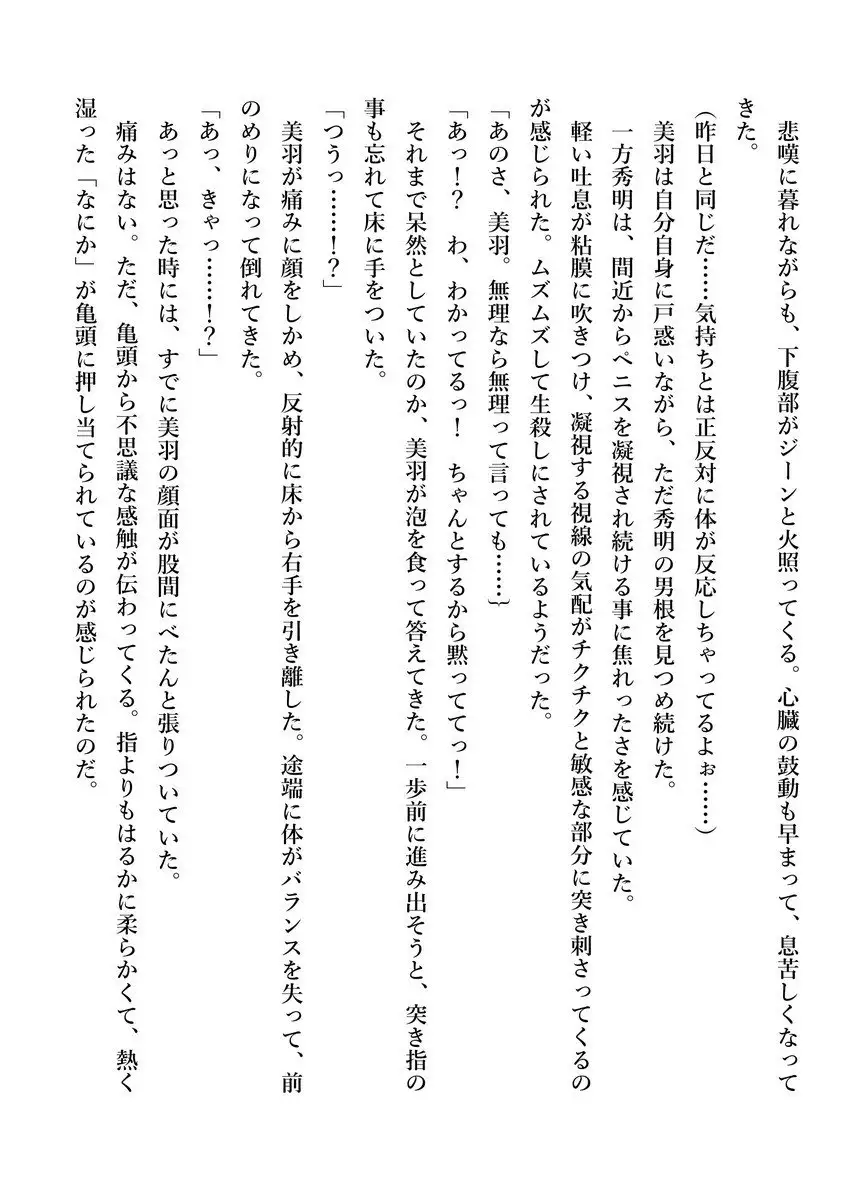 悲嘆に暮れながらも、下腹部がジーンと火照ってくる。心臓の鼓動も早まって、息苦しくなって
きた。
（昨日と同じだ……気持ちとは正反対に体が反応しちゃってるよぉ……）
　美羽は自分自身に戸惑いながら、ただ秀明の男根を見つめ続けた。
　一方秀明は、間近からペニスを凝視され続ける事に焦れったさを感じていた。
　軽い吐息が粘膜に吹きつけ、凝視する視線の気配がチクチクと敏感な部分に突き刺さってくるの
が感じられた。ムズムズして生殺しにされているようだった。
「あのさ、美羽。無理なら無理って言っても……｝
「あっ！？　わ、わかってるっ！　ちゃんとするから黙っててっ！」
　それまで呆然としていたのか、美羽が泡を食って答えてきた。一歩前に進み出そうと、突き指の
事も忘れて床に手をついた。
「つうっ……！？」
　美羽が痛みに顔をしかめ、反射的に床から右手を引き離した。途端に体がバランスを失って、前
のめりになって倒れてきた。
「あっ、きゃっ……！？」
　あっと思った時には、すでに美羽の顔面が股間にべたんと張りついていた。
　痛みはない。ただ、亀頭から不思議な感触が伝わってくる。指よりもはるかに柔らかくて、熱く
湿った「なにか」が亀頭に押し当てられているのが感じられたのだ。